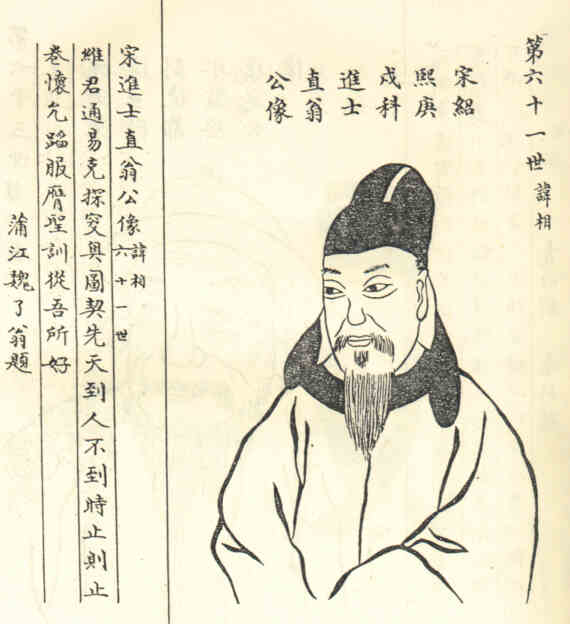 第六十一世諱相
宋紹
熙庚
戌科
進士
直翁
公像
宋進士直翁公像諱相六十一世
維君通易克探突奧圖契先天到人不到時止則止
卷懷允蹈服膺聖訓從吾所好
蒲江魏了翁題